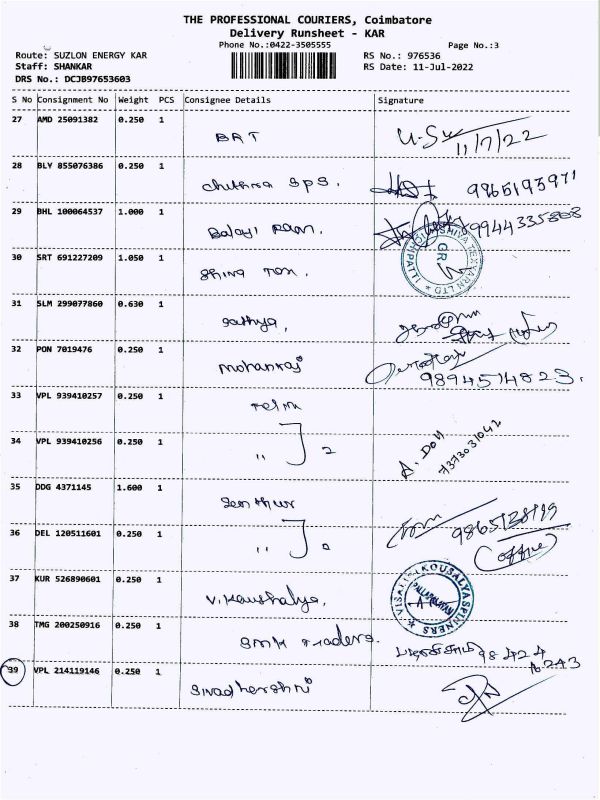 THE PROFESSIONAL COURIERS, Coimbatore
Delivery Runsheet - KAR
Phone No.:0422-3505555 Page No.:3
Route: SUZLON ENERGY KAR RS No.: 976536
Staff: SHANKAR RS Date: 11-Jul-2022
DRS No.: DCJB97653603
S No Consignment No Weight PCS Consignee Details Signature
27 AMD 25091382 0.250 1 BRT 11/7/22
28 BLY 855076386 0.250 1 chithra sps. 9965193971
29 BHL 100064537 1.000 1 Balaji Ram. 9944335808
30 SRT 691227209 1.050 1 Shiva Tex. GR
31 SLM 299077860 0.630 1 Sathya,
32 PON 7019476 0.250 1 Mohanraj 9894514823.
33 VPL 939410257 0.250 1
34 VPL 939410256 0.250 1 ,, ] 2 7373031042
35 DDG 4371145 1.600 1 Senthur
36 DEL 120511601 0.250 1 ,, ] (office)
37 KUR 526890601 0.250 1 V. Kaushalya, KOUSALYA SPINNERS
38 TMG 200250916 0.250 1 SMK Traders. 98424
39 VPL 214119146 0.250 1 Sivadharshni